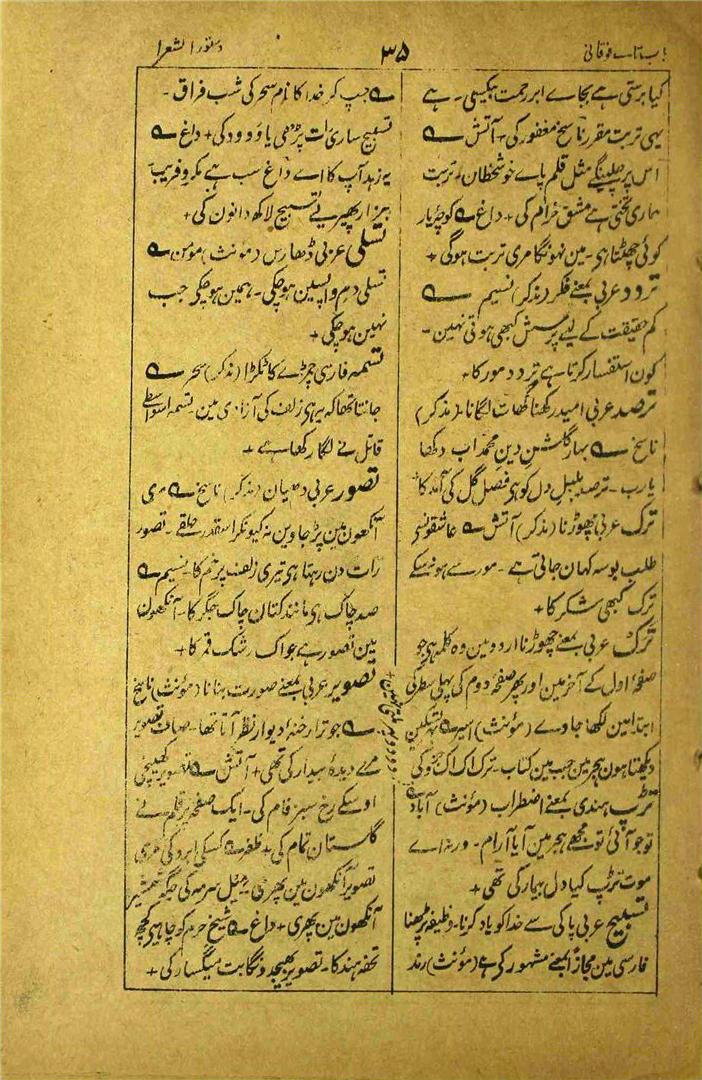 باب تاے فوقانی
۳۵
دستور الشعرا
کیا برستی ہے بجاے ابر رحمت بیکسی۔ ہے
یہی تربت مقرر ناسخ مغفور کی + آتش ؎
اس پر چلینگے مثل قلم پاے خوشخطان۔ تربت
ہماری تختی ہے مشق خرام کی + داغ ؎ کوچۂ یار
کوئی چھٹتا ہی۔ مین نہونگا مری تربت ہوگی +
تردد عربی بمعنے فکر (مذکر) نسیم ؎
کم حقیقت کے لیے پرسش کبھی ہوتی نہین۔
کون استفسار کرتا ہے تردد مور کا +
ترصد عربی امید رکھنا گھات لگانا۔ (مذکر)
ناسخ ؎ بہار گلشن دین محمد اب دکھا
یارب۔ ترصد بلبل دل کو ہی فصل گل کی آمد کا
ترک عربی چھوڑنا (مذکر) آتش ؎ عاشقونسی
طلب بوسہ کہان جاتی ہے۔ مور سے ہونہ سکے
ترک کبھی شکر کا +
ترک عربی بمعنے چھوڑنا اردو مین وہ کلمہ ہی جو
صفحۂ اول کے آخر مین اور پھر صفحہ دوم کی پہلی سطر کی
ابتدا مین لکھا جاوے (مؤنث) اسیر ؎
دیکھتا ہون ہجر مین جب مین کتاب۔ ترک اک اک جزو کی
تڑپ ہندی بمعنے اضطراب (مؤنث) آباد ؎
تو جو آئی تو مجھے ہجر مین آیا آرام۔ ورنہ اے
موت تڑپ کیا دل بیمار کی تھی +
تسبیح عربی پاکی سے خدا کو یاد کرنا۔ وظیفہ پڑھنا
فارسی مین مجازاً بمعنے مشہور کی ہے (مؤنث) رند
؎ جپ کر خدا کا نام سحر کی شب فراق۔
تسبیح ساری رات پڑھی یا ودود کی + داغ ؎
یہ زہد آپ کا اے داغ سب ہے مکر و فریب۔
ہزار پھیریے تسبیح لاکھ دانون کی +
تسلی عربی ڈھارس (مؤنث) مومن ؎
تسلی دم واپسین ہو چکی۔ ہمین ہو چکی جب
نہین ہو چکی +
تسمہ فارسی چمڑے کا ٹکڑا (مذکر) سحر ؎
جانتا تھا کہ یہ ہی زلف کی آزادی مین تسمہ اسواسطے
قاتل نے لگا رکھا ہے +
تصور عربی دھیان (مذکر) ناسخ ؎ مری
آنکھون مین پڑ جاوین نہ کیونکر اسقدر حلقے۔ تصور
رات دن رہتا ہی تیری زلف پر خم کا۔ نسیم ؎
صد چاک ہی مانند کتان چاک جگر کا۔ آنکھون
مین تصور ہے جو اک رشک قمر کا +
تصویر عربی بمعنے صورت بنانا (مؤنث) ناسخ
؎ جو ترا رخنۂ دیوار نظر آتا تھا۔ صاف تصویر
مرے دیدۂ بیدار کی تھی + آتش ؎ تصویر کھینچی
اوسکے رخ سبز فام کی۔ ایک صفحہ پر قلم نے
گلستان تمام کی۔ ظفر ؎ کسکی ابرو کی مری
تصویر آنکھون مین پھری۔ میل سرمہ کی جگہ شمشیر
آنکھون مین پھری + داغ ؎ شیخ حرم کو چاہی کچھ
تحفہ ہند کا۔ تصویر بھیجد ونگا بت میگسار کی +